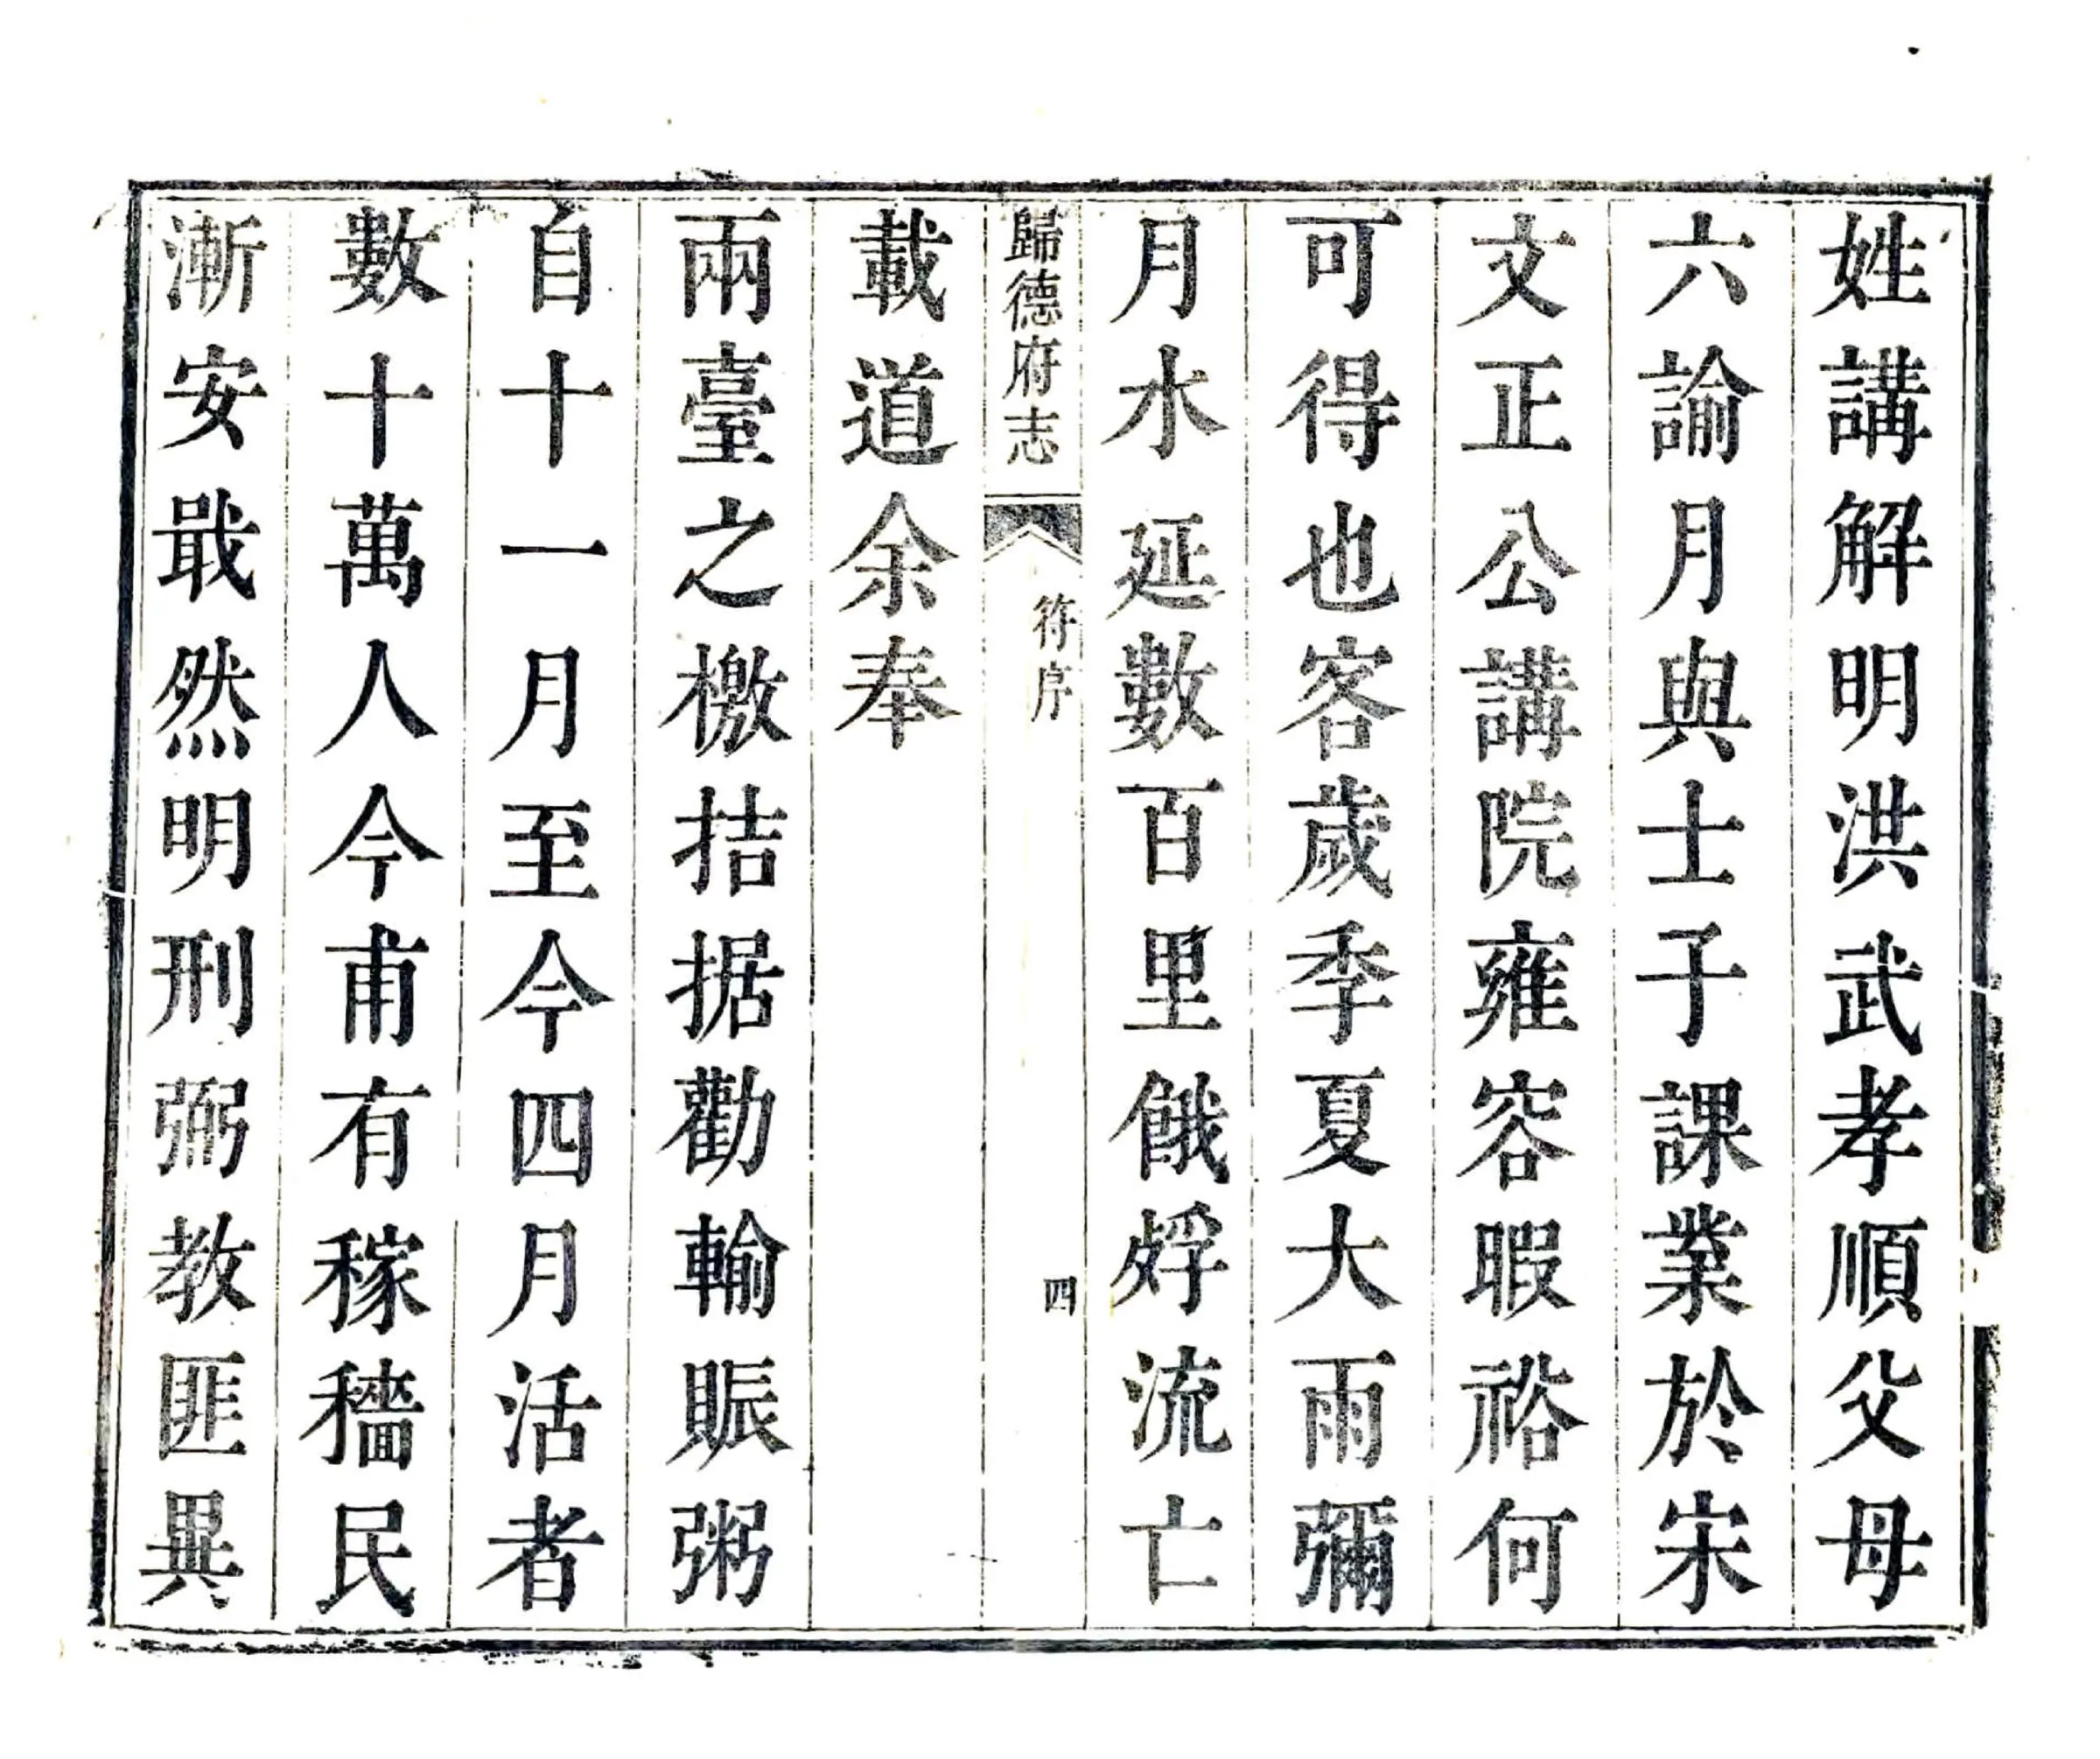 姓講解明洪武孝順父母
六諭月與士子課業於宋
文正公講院雍容暇裕何
可得也客歲季夏大雨彌
月水延數百里餓殍流亡
歸德府志
符序
四
載道余奉
兩臺之檄拮据勸輸賑粥
自十一月至今四月活者
數十萬人今甫有稼穡民
漸安戢然明刑弼教匪異